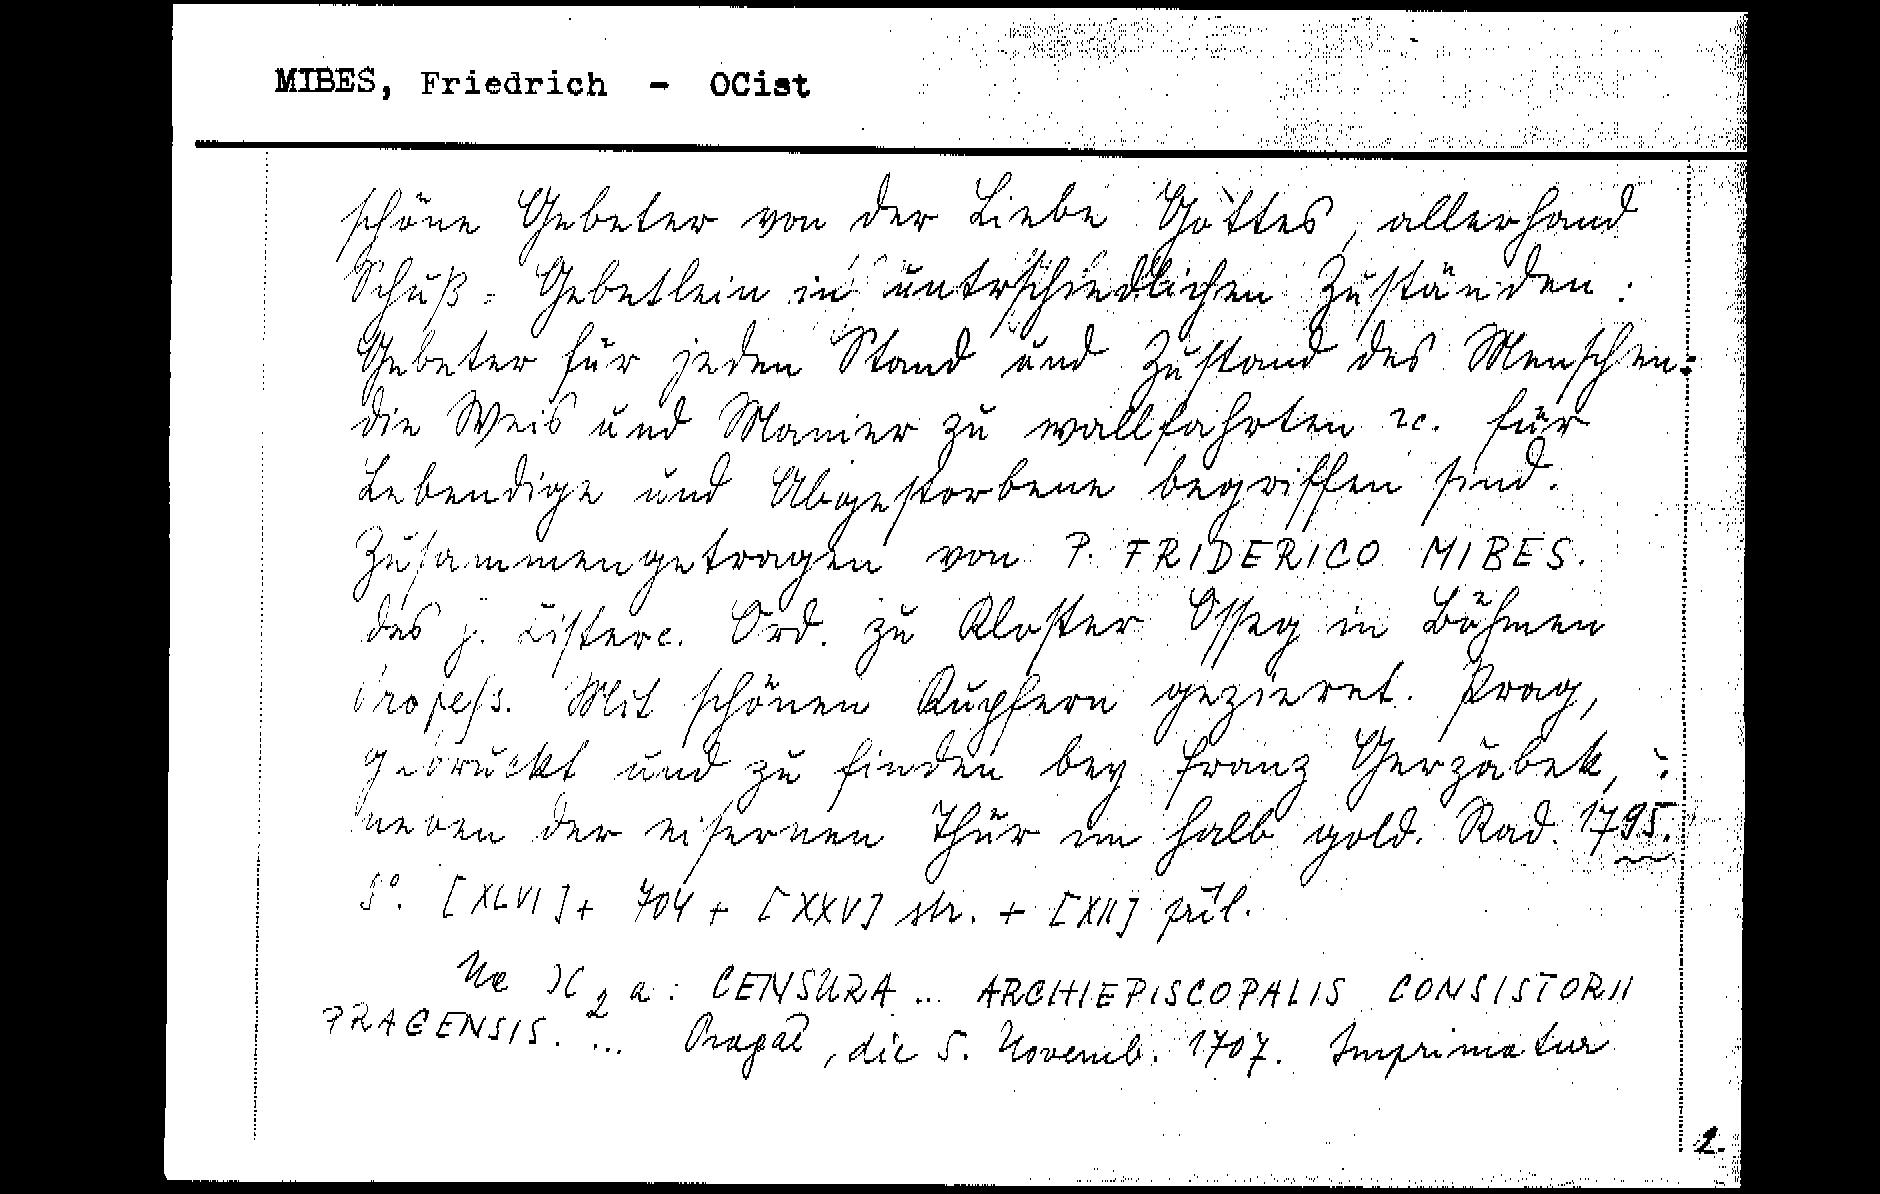 MIBES, Friedrich - OCist
schöne Gebeter von der Liebe Gottes, allerhand
Schuß-Gebetlein in unterschiedlichen Zuständen:
Gebeter für jeden Stand und Zustand des Menschen:
die Weis und Manier zu wallfahrten ꝛc. für
Lebendige und Abgestorbene begriffen sind.
Zusammengetragen von P. FRIDERICO MIBES.
des h. Cisterc. Ord. zu Kloster Osseg in Böhmen
Profess. Mit schönen Kupfern gezieret. Prag,
gedruckt und zu finden bey Franz Gerzabek,
neben der eisernen Thür im halb gold. Rad. 1795.
8°. [XLVI] + 704 + [XXV] str. + [XII] příl.
Na )( 2 a: CENSURA ... ARCHIEPISCOPALIS CONSISTORII
PRAGENSIS. ... Pragae, die 5. Novemb. 1707. Imprimatur
2.